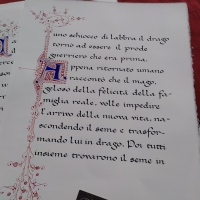 uno schiocco di labbra il drago
tornò ad essere il prode
guerriero che era prima.
Appena ritornato umano
raccontò che il mago,
geloso della felicità della fa-
miglia reale, volle impedire
l'arrivo della nuova vita, na-
scondendo il seme e trasfor-
mando lui in drago. Poi tutti
insieme trovarono il seme in